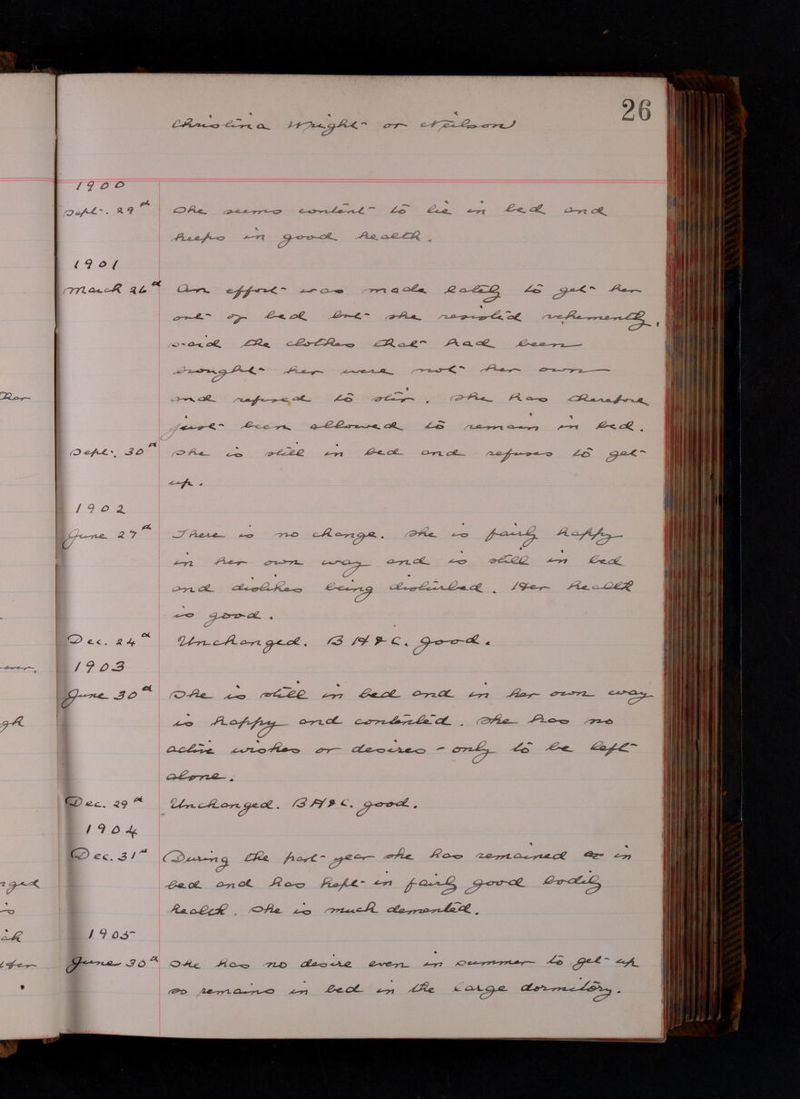 26
Christina Wright or Neilson
1900
Sept. 29th She seems content to lie in bed and
keeps in good health.
1901
March 26th An effort was made lately to get her
out of bed but she resisted vehemently,
said the clothes that had been
brought her were not her own
and refused to stir. She has therefore
just been allowed to remain in bed.
Sept. 30th She is still in bed and refuses to get
up.
1902
June 27th There is no change. She is fairly happy
in her own way and is still in bed
and dislikes being disturbed. Her health
is good.
Dec. 24th Unchanged. B H & C. good.
1903
June 30th She is still in bed and in her own way
is happy and contented. She has no
active wishes or desires - only to be left
alone.
Dec. 29th Unchanged. B H & C. good.
1904
Dec. 31st During the past year she has remained in
bed and has kept in fairly good bodily
health. She is much demented.
1905
June 30th She has no desire even in summer to get up
so remains in bed in the large dormitory.